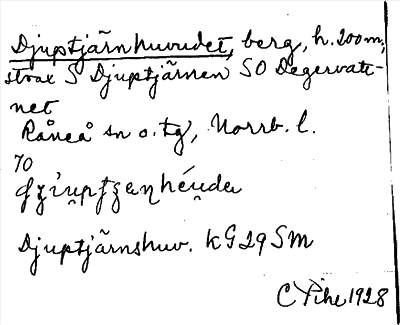 Djuptjärnhuvudet, berg, h. 200 m,
strax S Djuptjärnen SO Degervatt-
net
Råneå sn o. tg, Norrb. l.
70
Djuptjärnshuv. kG29SM
C Pihl 1928